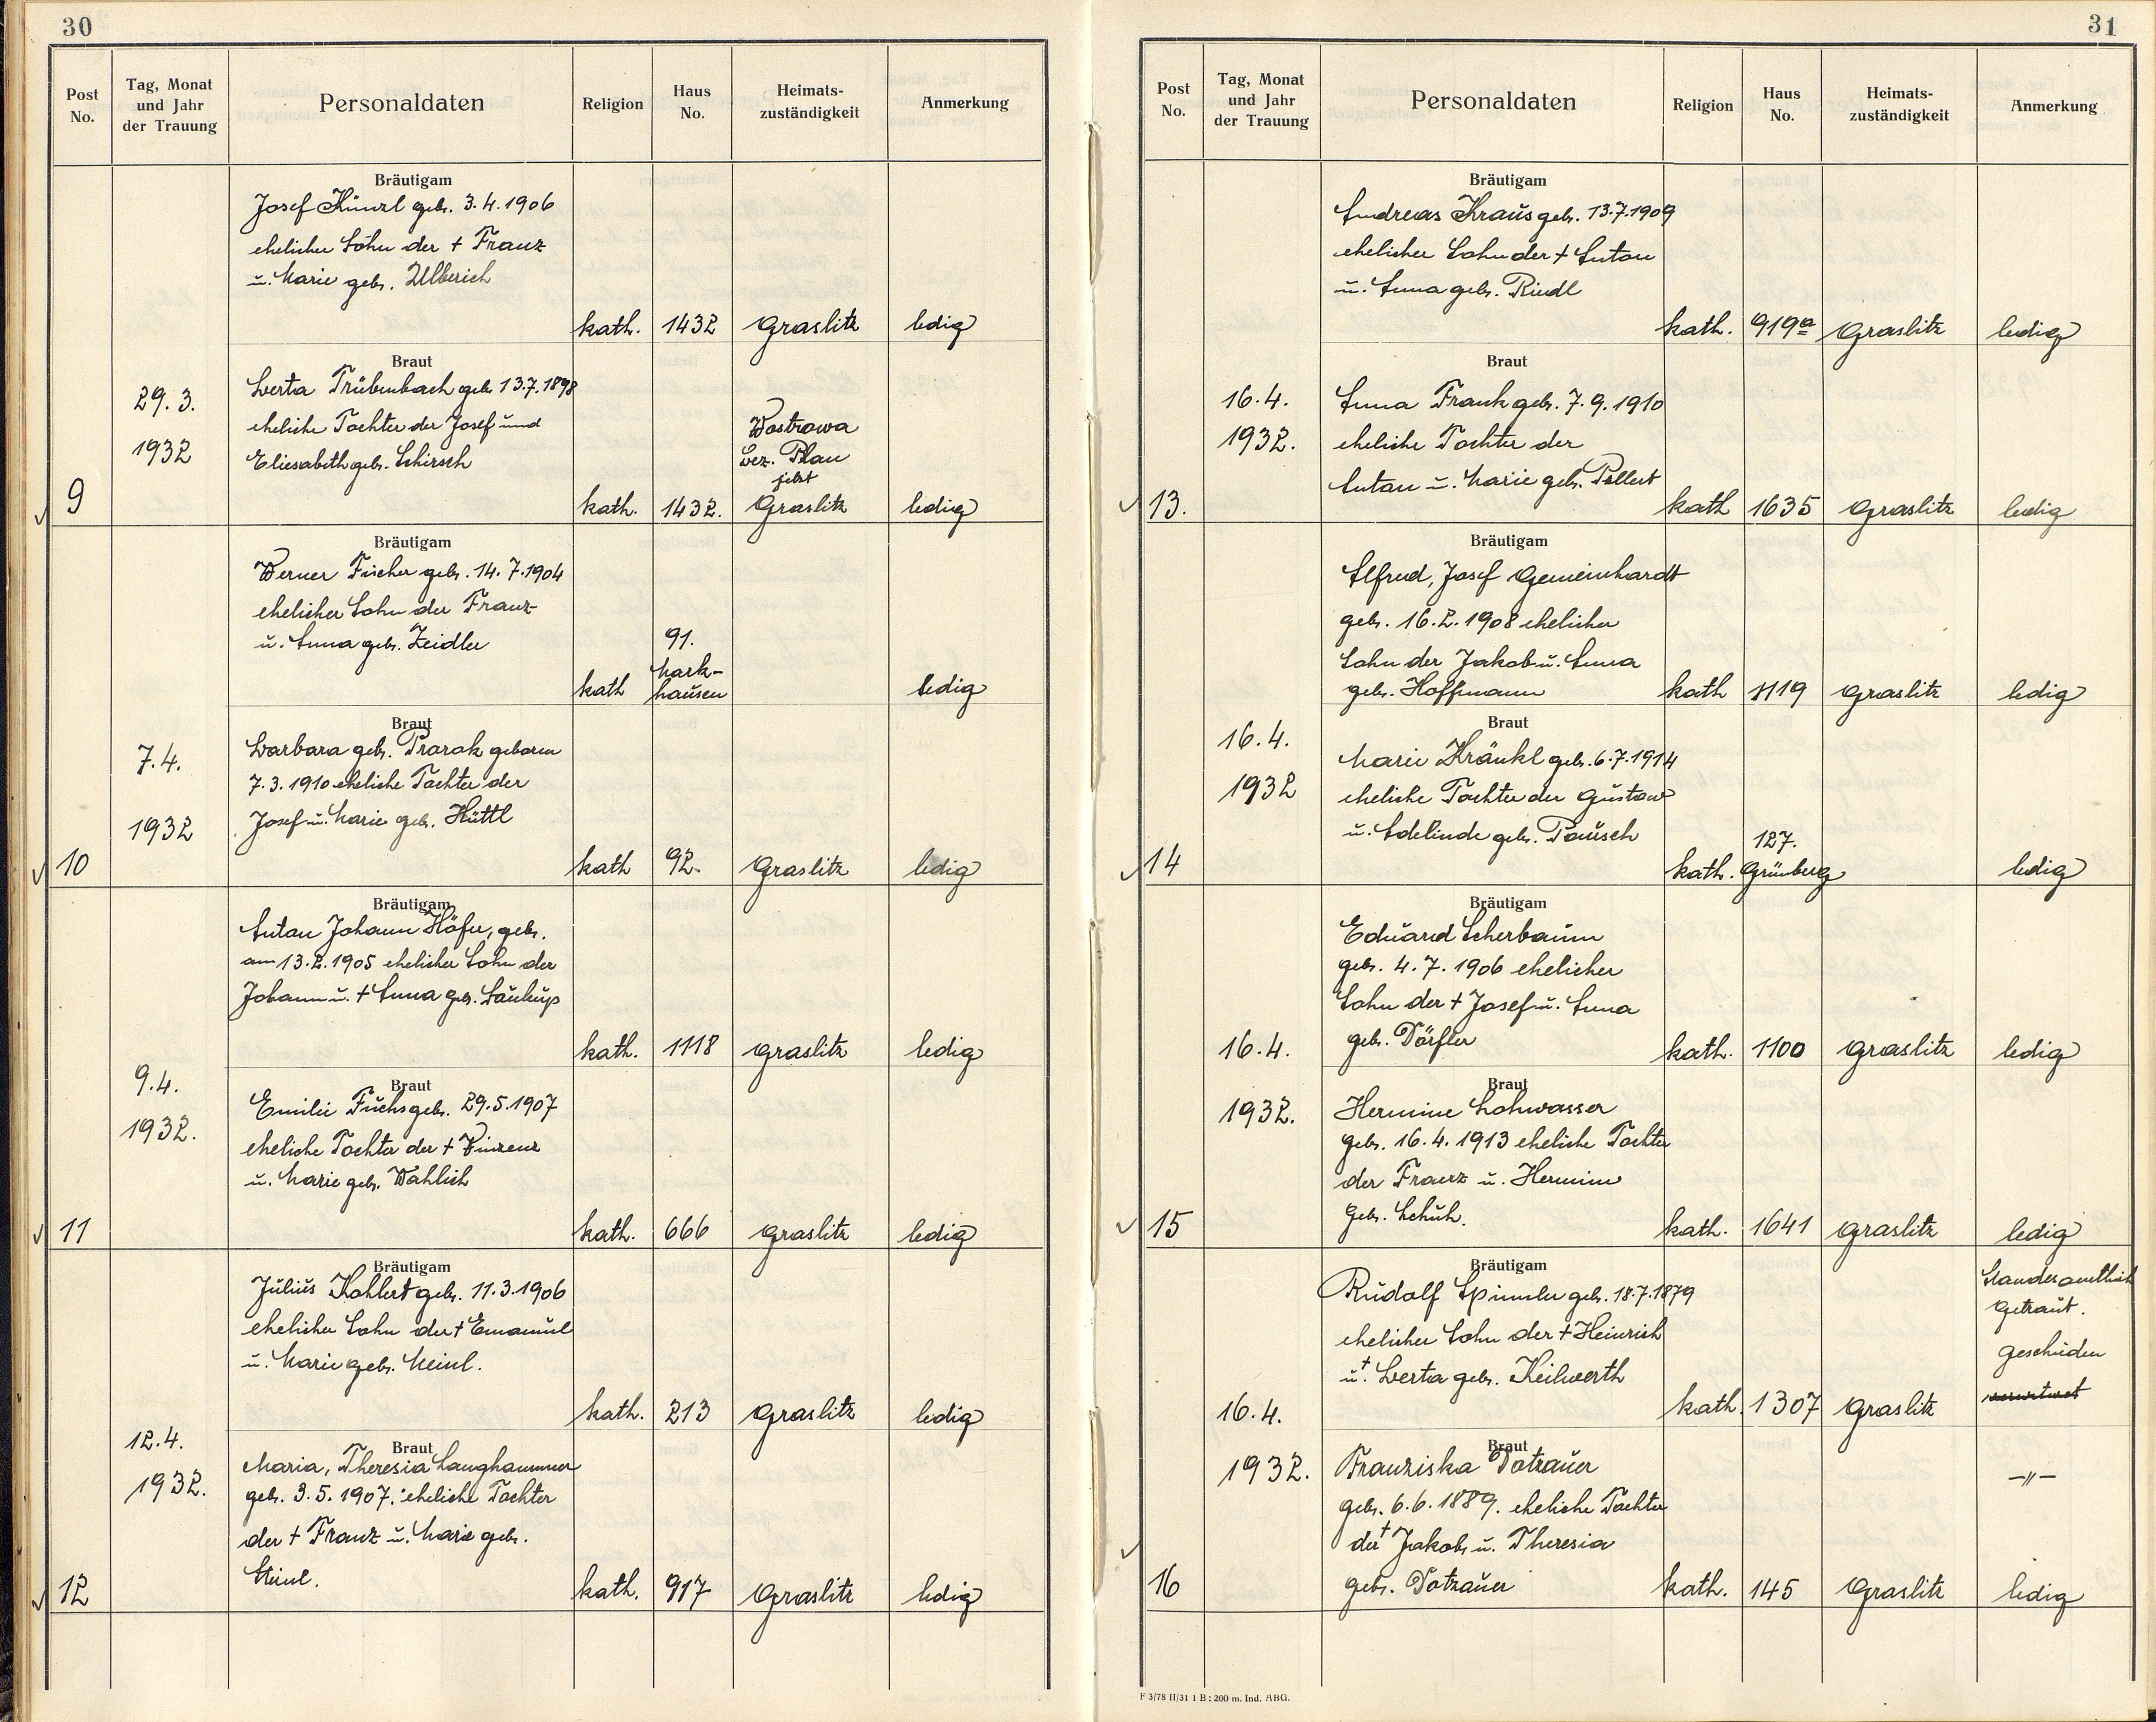 30
Post No.
Tag, Monat und Jahr der Trauung
Personaldaten
Religion
Haus No.
Heimats-zuständigkeit
Anmerkung
Bräutigam
Josef Künzl geb. 3.4.1906
ehelicher Sohn der + Franz
u. Marie geb. Ullberich
kath. 1432 Graslitz ledig
Braut
Berta Trübenbach geb. 13.7.1898
eheliche Tochter der Josef und
Eliesabeth geb. Schirsch
29.3.
1932
Wostrowa
Bez. Plan
jetzt
9 kath. 1432. Graslitz ledig
Bräutigam
Werner Fischer geb. 14.7.1904
ehelicher Sohn der Franz
u. Anna geb. Zeidler
91.
Mark-
kath hausen ledig
Braut
Barbara geb. Prorok geboren
7.3.1910 eheliche Tochter der
Josef u. Marie geb. Hüttl
7.4.
1932
10 kath 92. Graslitz ledig
Bräutigam
Anton Johann Höfer, geb.
am 13.2.1905 ehelicher Sohn der
Johann u. + Anna geb. Saukup
kath. 1118 Graslitz ledig
Braut
Emilie Fuchs geb. 29.5.1907
eheliche Tochter der + Vinzenz
u. Marie geb. Wahlich
9.4.
1932.
11 kath. 666 Graslitz ledig
Bräutigam
Julius Kohlert geb. 11.3.1906
ehelicher Sohn der + Emanuel
u. Marie geb. Meinl.
kath. 213 Graslitz ledig
Braut
Maria, Theresia Langhammer
geb. 3.5.1907. eheliche Tochter
der + Franz u. Marie geb.
12.4.
1932.
12 kath. 917 Graslitz ledig
31
Post No.
Tag, Monat und Jahr der Trauung
Personaldaten
Religion
Haus No.
Heimats-zuständigkeit
Anmerkung
Bräutigam
Andreas Kraus geb. 13.7.1909
ehelicher Sohn der + Anton
u. Anna geb. Riedl
kath. 919a Graslitz ledig
Braut
Anna Frank geb. 7.9.1910
eheliche Tochter der
Anton u. Marie geb. Pellert
16.4.
1932.
13. kath 1635 Graslitz ledig
Bräutigam
Alfred, Josef Gemeinhardt
geb. 16.2.1908 ehelicher
Sohn der Jakob u. Anna
geb. Hoffmann
kath 1119 Graslitz ledig
Braut
Marie Kränkl geb. 6.7.1914
eheliche Tochter der Gustav
u. Adelinde geb. Pausch
16.4.
1932
127.
14 kath. Grünberg ledig
Bräutigam
Eduard Scherbaum
geb. 4.7.1906 ehelicher
Sohn der + Josef u. Anna
geb. Dörfler
kath. 1100 Graslitz ledig
Braut
Hermine Lohwasser
geb. 16.4.1913 eheliche Tochter
der Franz u. Hermine
geb. Schuh.
16.4.
1932.
15 kath. 1641 Graslitz ledig
Bräutigam
Rudolf Spinnler geb. 18.7.1879
ehelicher Sohn der + Heinrich
u. + Berta geb. Keilwerth
Standesamtlich
getraut.
geschieden
verwitwet
kath. 1307 Graslitz
Braut
Franziska Dotzauer
geb. 6.6.1889. eheliche Tochter
der + Jakob u. Theresia
geb. Dotzauer
16.4.
1932.
—"—
16 kath. 145 Graslitz ledig
F 3/78 II/31 1 B : 200 m. Ind. ABG.